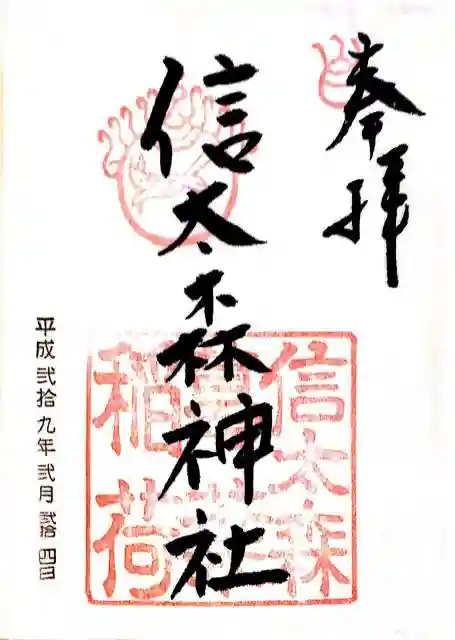 奉拝
信太森神社
信太森
稲荷
平成弐拾九年弐月弐拾四日